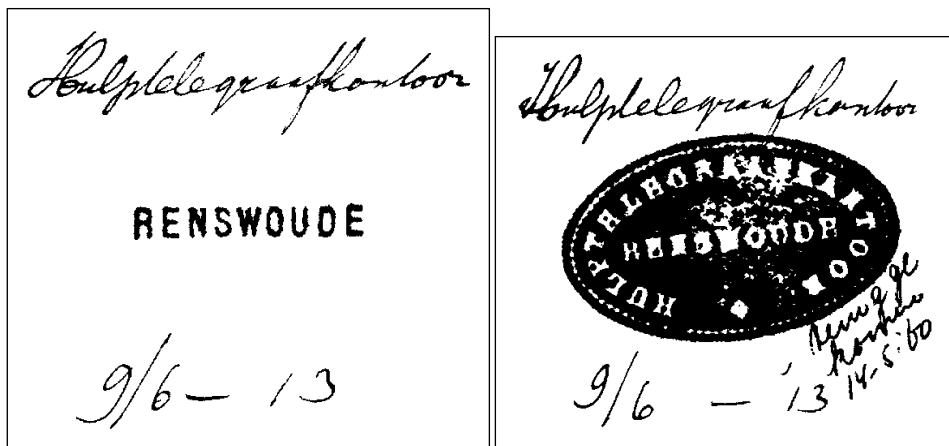 Hulptelegraafkantoor
RENSWOUDE
9/6 — 13
Hulptelegraafkantoor
HULPTELEGRAAFKANTOOR
RENSWOUDE
terug ge
komen
14-5-'60
9/6 — 13